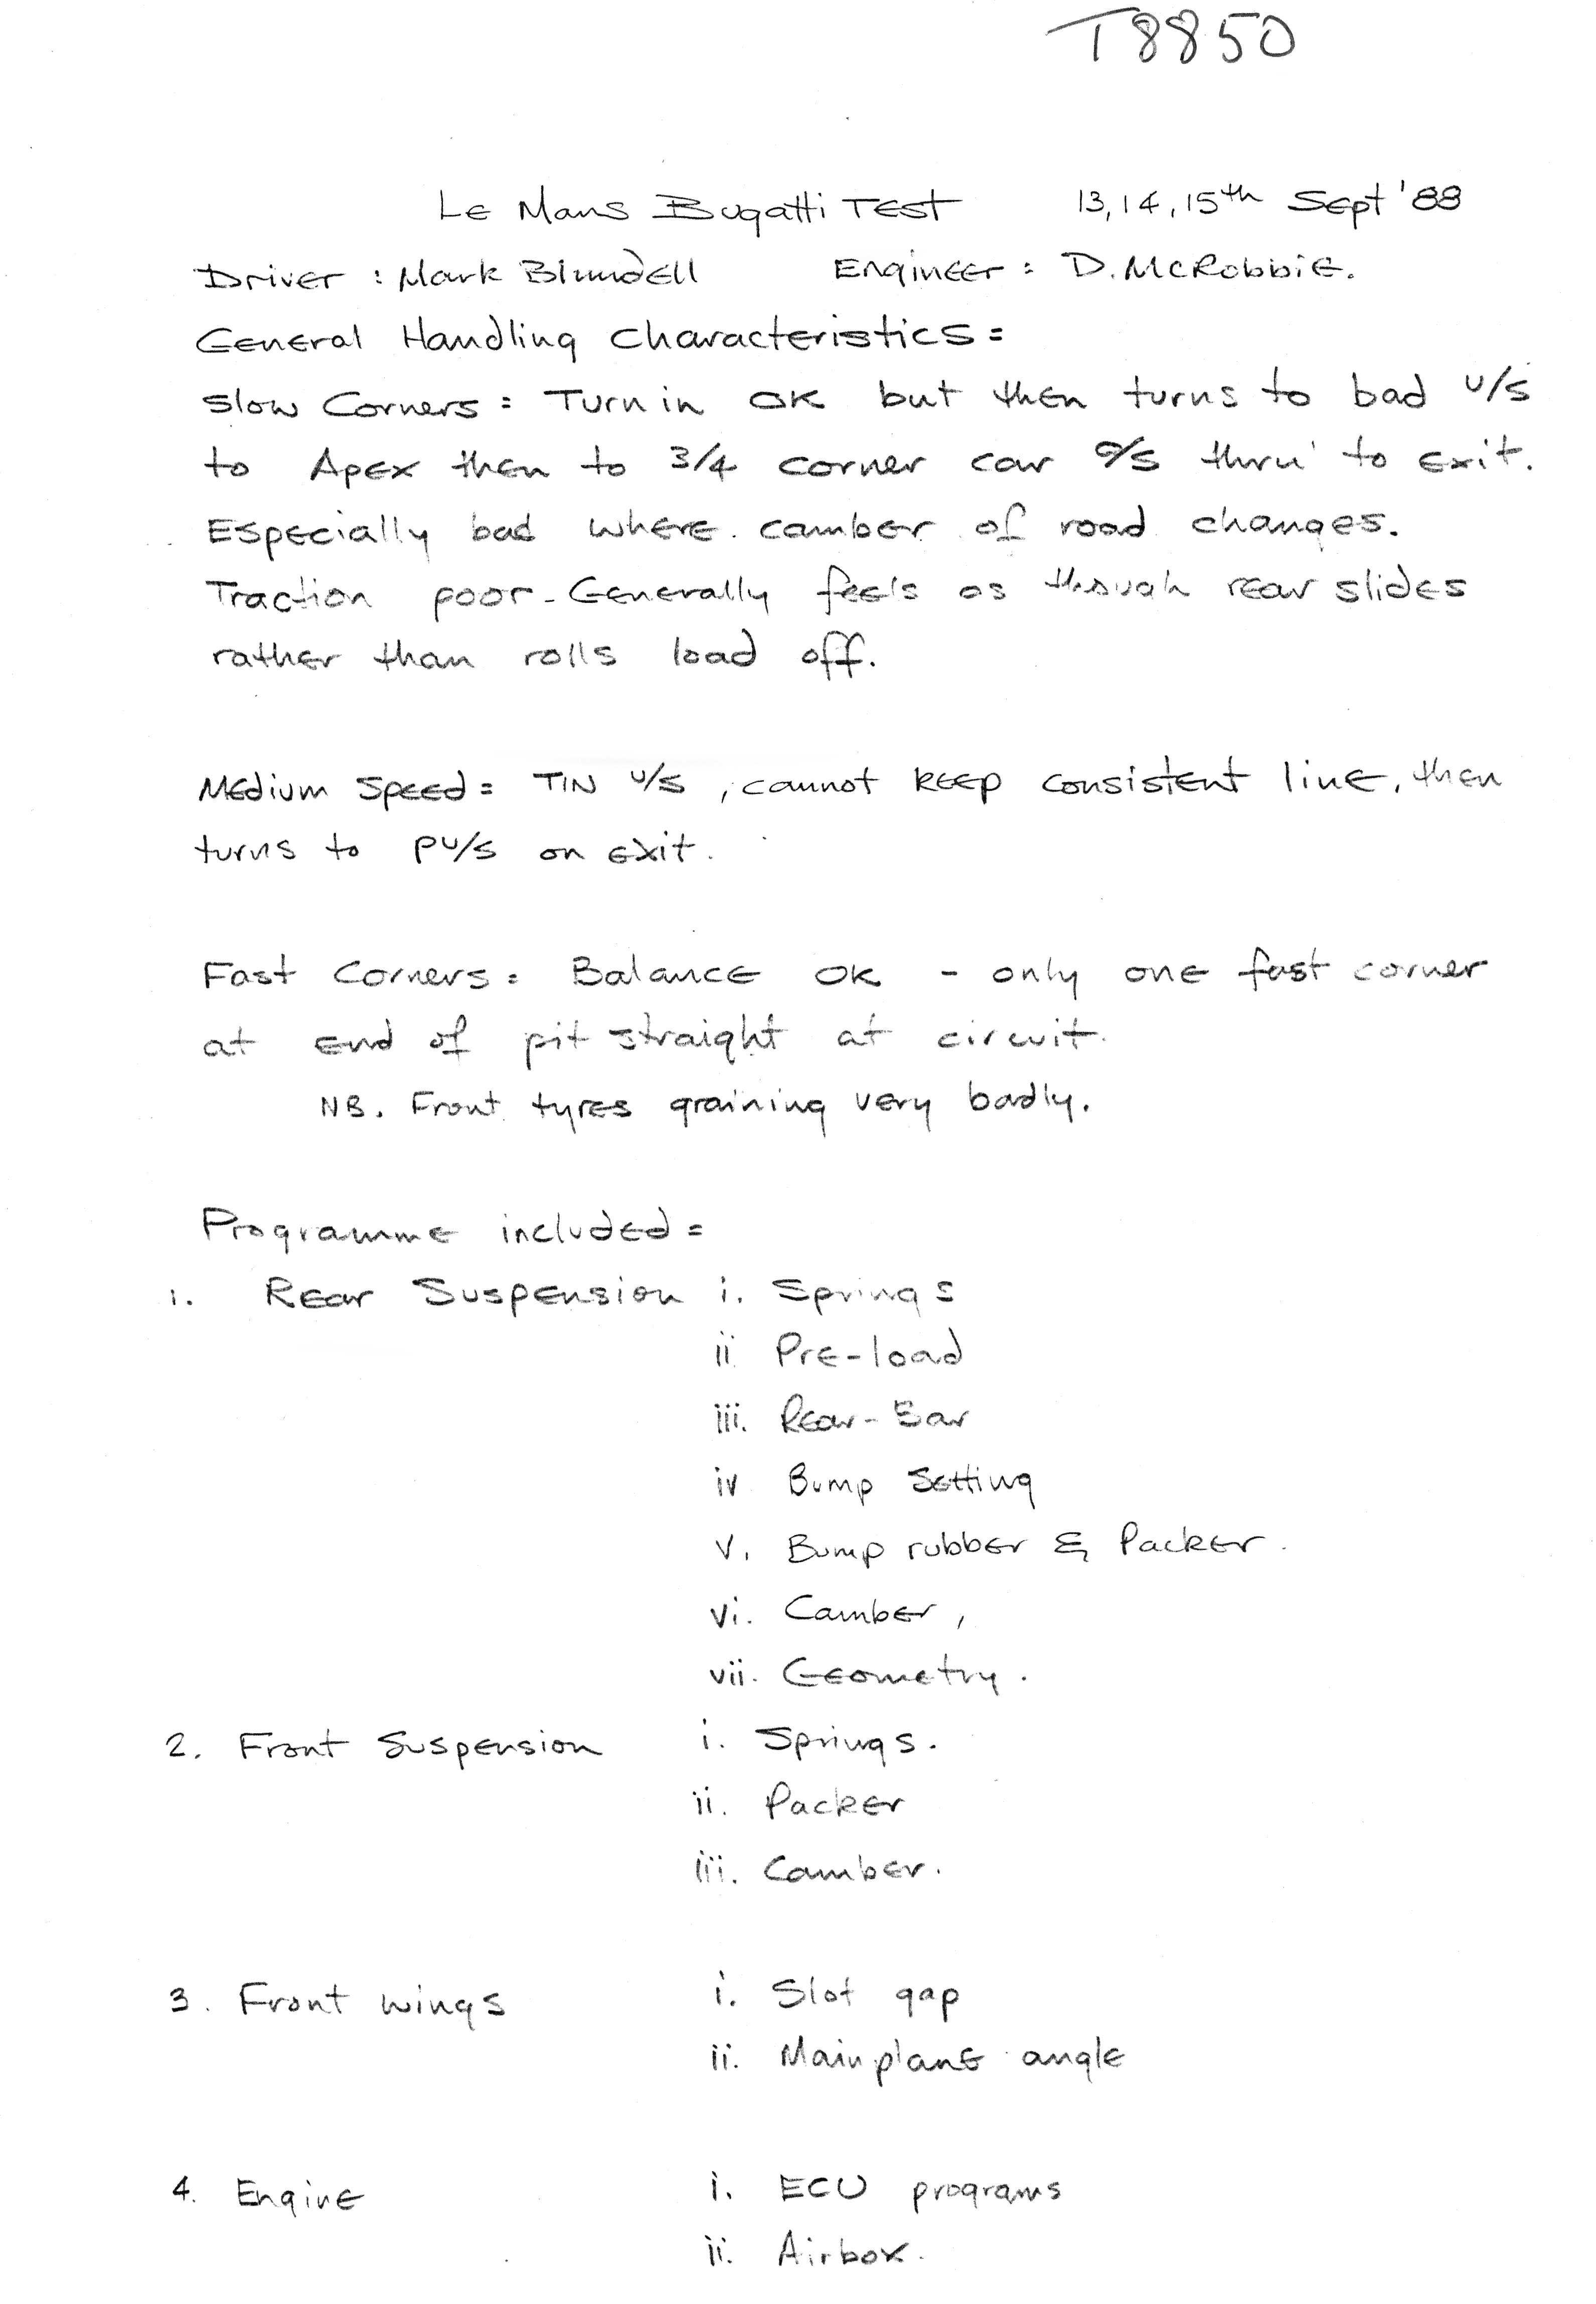 T8850
Le Mans Bugatti Test 13,14,15th Sept '88
Driver : Mark Blundell Engineer : D. McRobbie.
General Handling Characteristics :
Slow Corners : Turn in OK but then turns to bad u/s
to Apex then to 3/4 corner car o/s thru' to exit.
Especially bad where camber of road changes.
Traction poor - Generally feels as though rear slides
rather than rolls load off.
Medium Speed : TIN u/s, cannot keep consistent line, then
turns to pu/s on exit.
Fast Corners : Balance OK - only one fast corner
at end of pit straight at circuit.
NB. Front tyres graining very badly.
Programme included :
1. Rear Suspension i. Springs
ii Pre-load
iii. Rear-Bar
iv Bump Setting
v. Bump rubber & Packer.
vi. Camber,
vii. Geometry.
2. Front Suspension i. Springs.
ii. Packer
iii. Camber.
3. Front wings i. Slot gap
ii. Mainplane angle
4. Engine i. ECU programs
ii. Airbox.